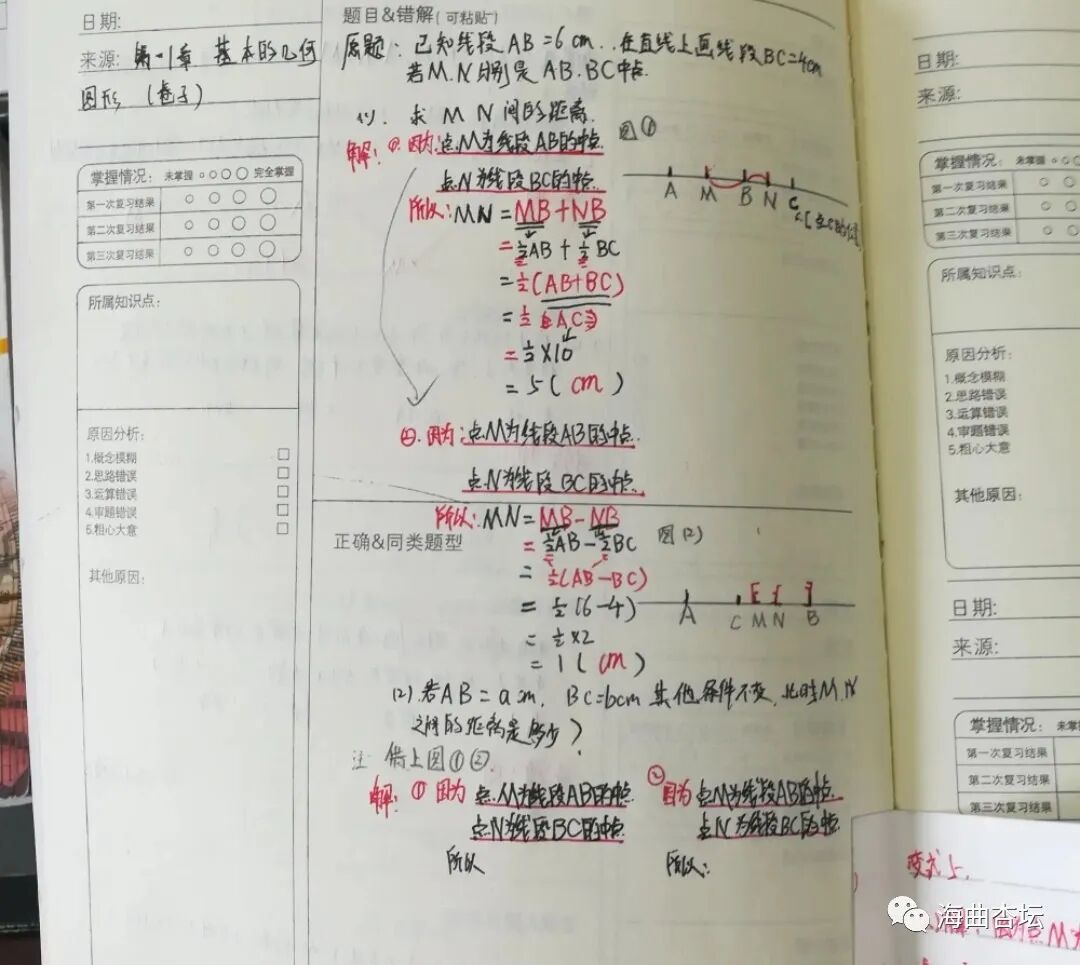 日期:
来源: 第一章 基本的几何
图形 (卷子)
掌握情况: 未掌握 ○○○○ 完全掌握
第一次复习结果 ○ ○ ○ ○
第二次复习结果 ○ ○ ○ ○
第三次复习结果 ○ ○ ○ ○
所属知识点:
原因分析:
1.概念模糊 □
2.思路错误 □
3.运算错误 □
4.审题错误 □
5.粗心大意 □
其他原因:
题目&错解(可粘贴)
原题: 已知线段AB=6cm..在直线上画线段BC=4cm
若M.N分别是AB.BC中点.
(1). 求MN间的距离.
图①
解: ①.因为:点M为线段AB的中点.
点N为线段BC的中点.
A M B N C
所以: MN=MB+NB
=½AB+½BC
=½(AB+BC)
=½AC
=½×10
=5(cm)
二.因为:点M为线段AB的中点.
点N为线段BC的中点.
正确&同类题型
所以:MN=MB-NB
图(2)
=½AB-½BC
=½(AB-BC)
=½(6-4)
A C M N B
=½×2
=1(cm)
(2).若AB=acm, BC=bcm其他条件不变,此时M.N
之间的距离是多少?
注 借上图①②.
解: ①因为 点M为线段AB的中点.
点N为线段BC的中点.
所以
②因为点M为线段AB的中点.
点N为线段BC的中点.
所以:
日期:
来源:
掌握情况: 未掌握 ○○
第一次复习结果 ○ ○
第二次复习结果 ○ ○
第三次复习结果 ○ ○
所属知识点:
原因分析:
1.概念模糊
2.思路错误
3.运算错误
4.审题错误
5.粗心大意
其他原因:
日期:
来源:
掌握情况: 未掌
第一次复习结果
第二次复习结果
第三次复习结果
变式1.
海曲杏坛